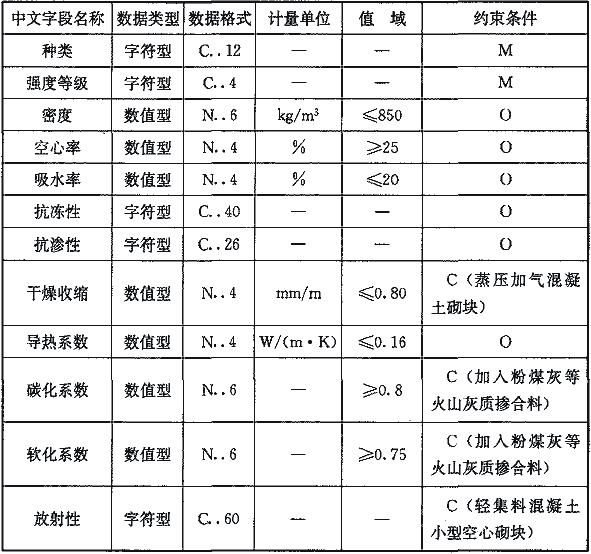 中文字段名称 数据类型 数据格式 计量单位 值 域 约束条件
种类 字符型 C..12 — — M
强度等级 字符型 C..4 — — M
密度 数值型 N..6 kg/m³ ≤850 O
空心率 数值型 N..4 % ≥25 O
吸水率 数值型 N..4 % ≤20 O
抗冻性 字符型 C..40 — — O
抗渗性 字符型 C..26 — — O
干燥收缩 数值型 N..4 mm/m ≤0.80 C（蒸压加气混凝
土砌块）
导热系数 数值型 N..4 W/(m·K) ≤0.16 O
碳化系数 数值型 N..6 — ≥0.8 C（加入粉煤灰等
火山灰质掺合料）
软化系数 数值型 N..6 — ≥0.75 C（加入粉煤灰等
火山灰质掺合料）
放射性 字符型 C..60 — — C（轻集料混凝土
小型空心砌块）